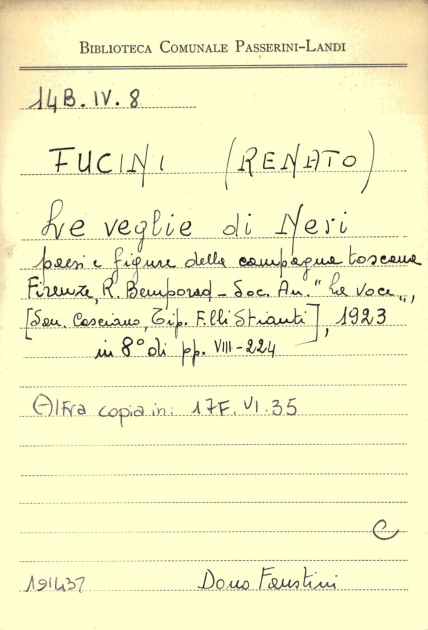 BIBLIOTECA COMUNALE PASSERINI-LANDI
14B.IV.8
FUCINI (RENATO)
Le veglie di Neri
paesi e figure della campagna toscana
Firenze, R. Bemporad - Soc. An. "La voce",
[San Casciano, Tip. F.lli Stianti], 1923
in 8° di pp. VIII-224
Altra copia in: 17F.VI.35
C
191437
Dono Faustini